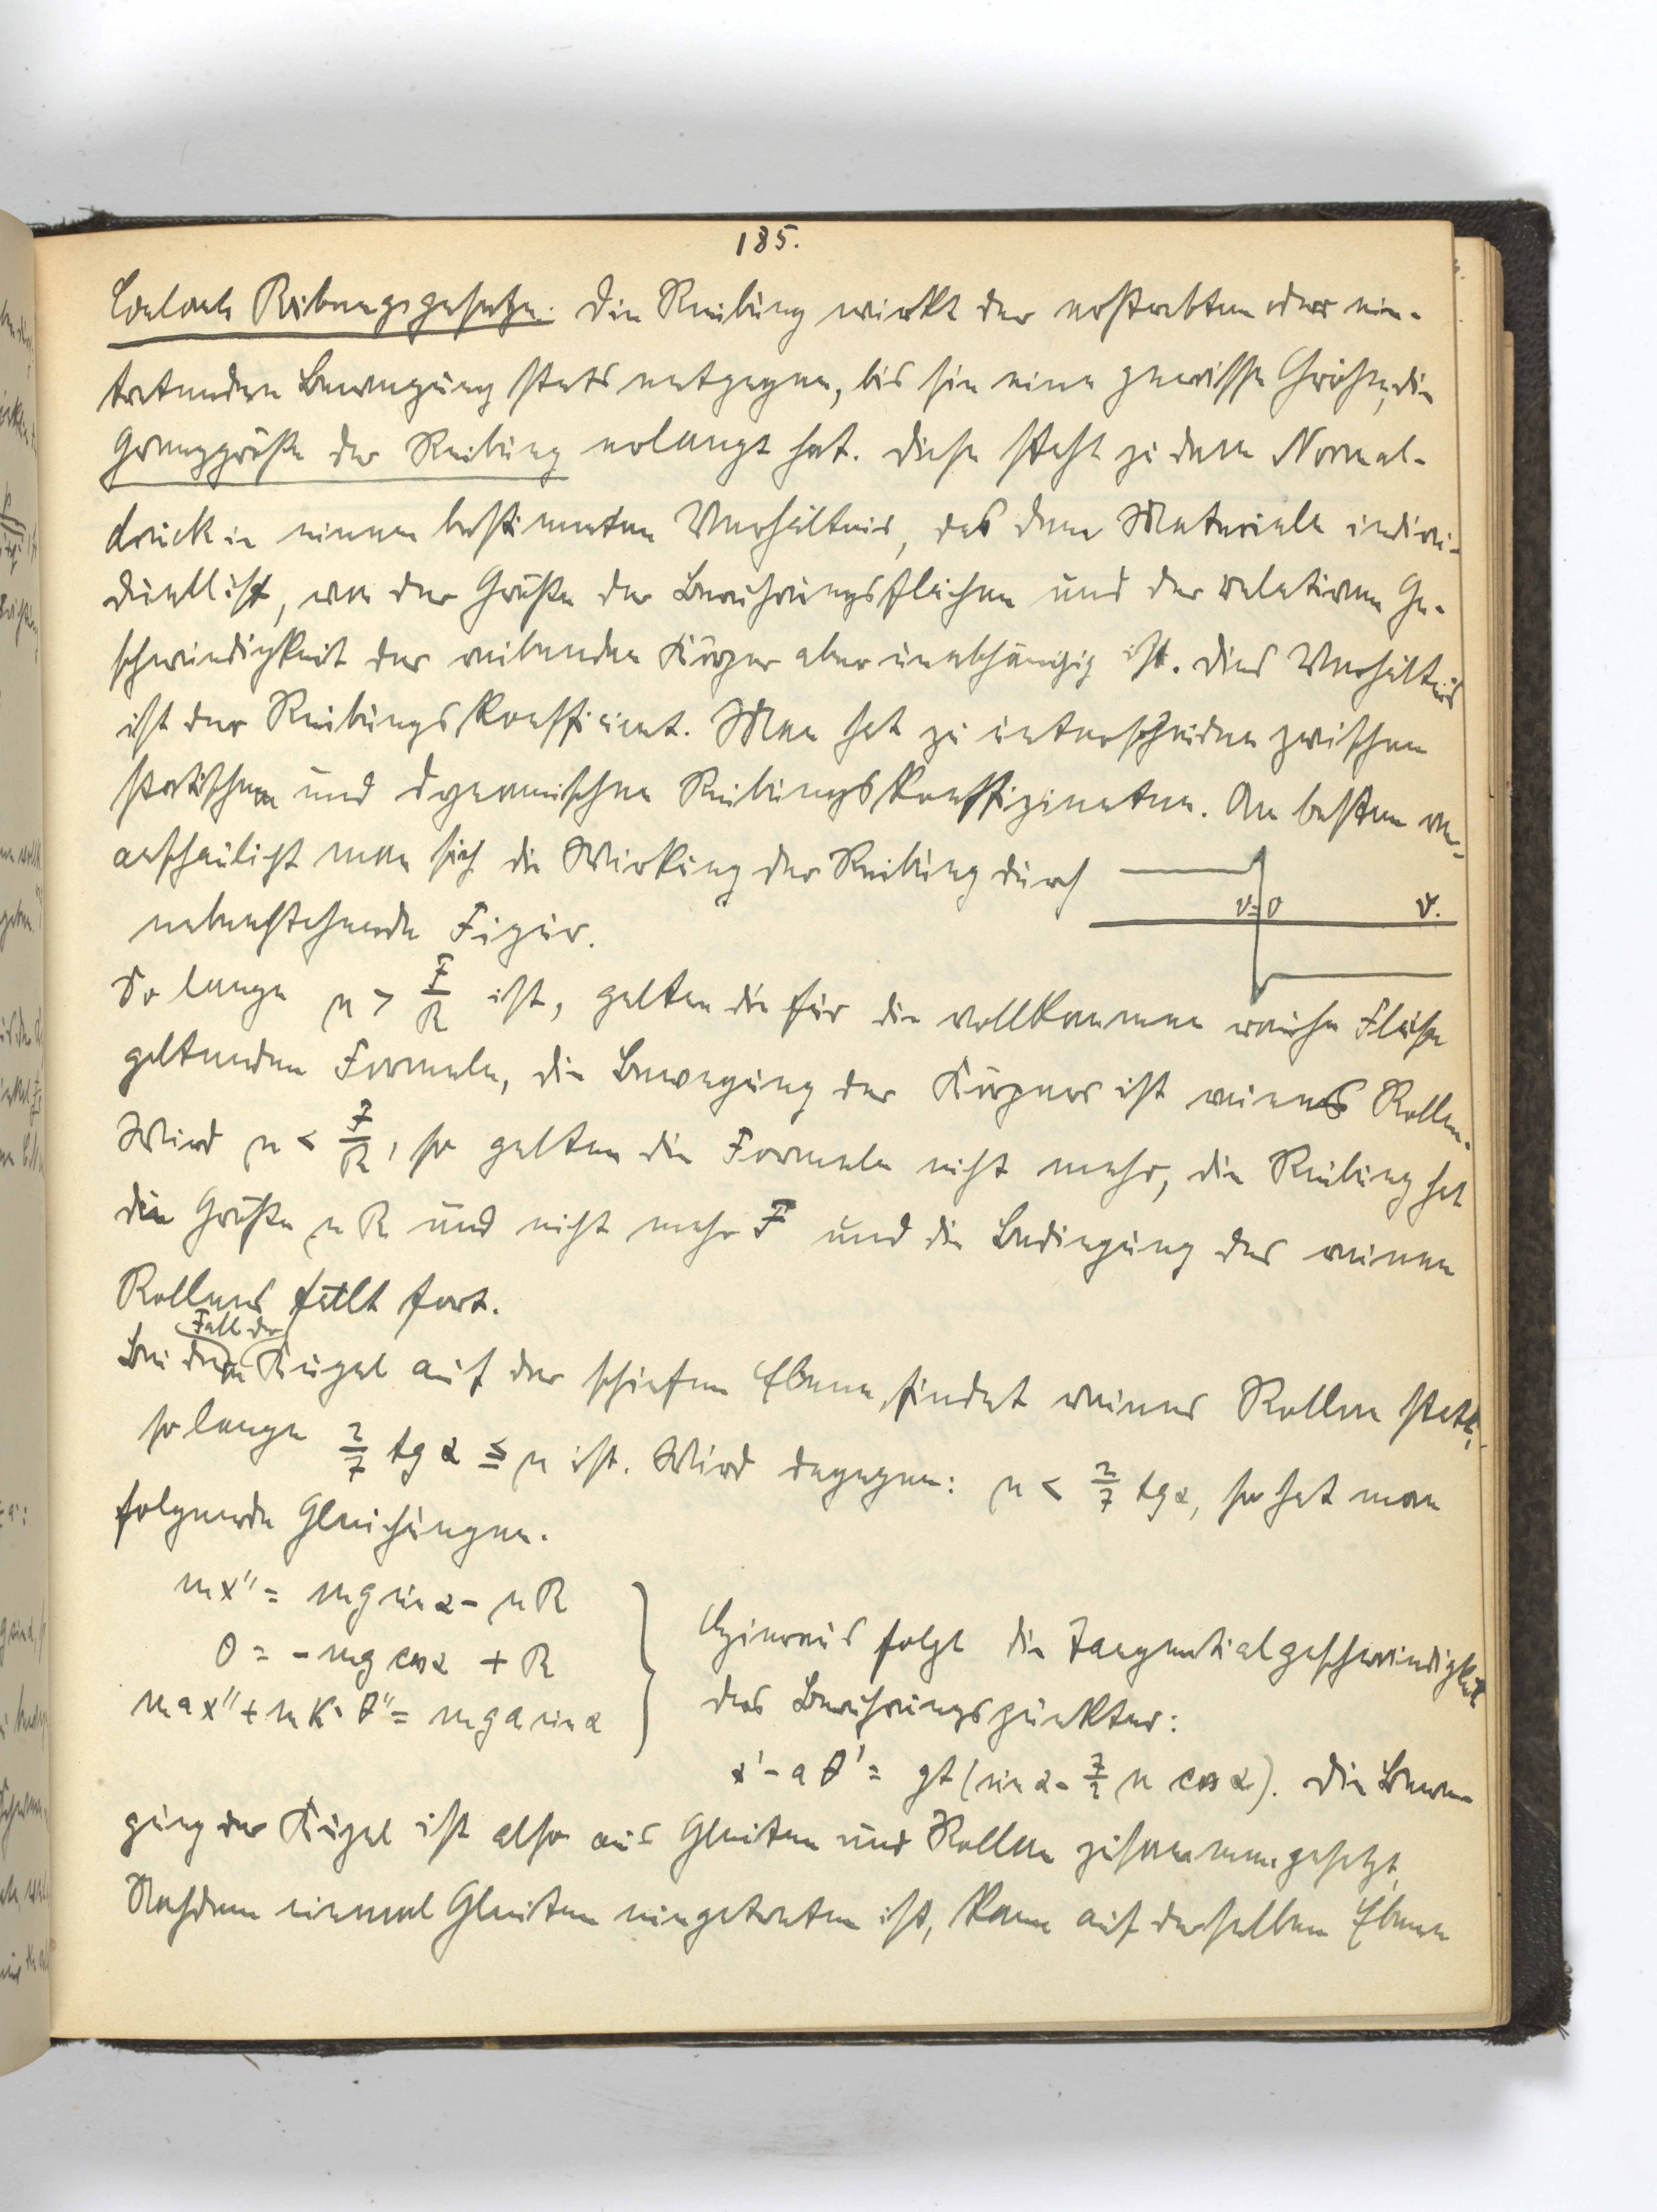 185.
Coulombs Reibungsgesetze. Die Reibung wirkt der erstrebten oder ein-
tretenden Bewegung stets entgegen, bis sie eine gewisse Größe, die
Grenzgröße der Reibung erlangt hat. Diese steht zu dem Normal-
druck in einem bestimmten Verhältnis, das dem Materiale indivi-
duell ist, von der Größe der Berührungsflächen und der relativen Ge-
schwindigkeit der reibenden Körper aber unabhängig ist. Dies Verhältnis
ist der Reibungskoefficient. Man hat zu unterscheiden zwischen
statischem und dynamischen Reibungskoeffizienten. Am besten ver-
anschaulicht man sich die Wirkung der Reibung durch
v=0 v.
nebenstehende Figur.
So lange μ > F/R ist, gelten die für die vollkommen rauhe Fläche
geltenden Formeln, die Bewegung des Körpers ist reines Rollen.
Wird μ < F/R, so gelten die Formeln nicht mehr, die Reibung hat
die Größe μR und nicht mehr F und die Bedingung des reinen
Rollens fällt fort.
Fall der
Bei dem Kugel auf der schiefen Ebene findet reines Rollen statt,
so lange 2/7 tg α ≦ μ ist. Wird dagegen: μ < 2/7 tg α, so hat man
folgende Gleichungen.
mx'' = mg sin α - μR
0 = - mg cos α + R
max'' + mK² θ'' = mga sin α
Hieraus folgt die Tangentialgeschwindigkeit
des Berührungspunktes:
x' - aθ' = gt (sin α - 7/2 μ cos α). Die Bewe-
gung der Kugel ist also aus Gleiten und Rollen zusammengesetzt.
Nachdem einmal Gleiten eingetreten ist, kann auf derselben Ebene